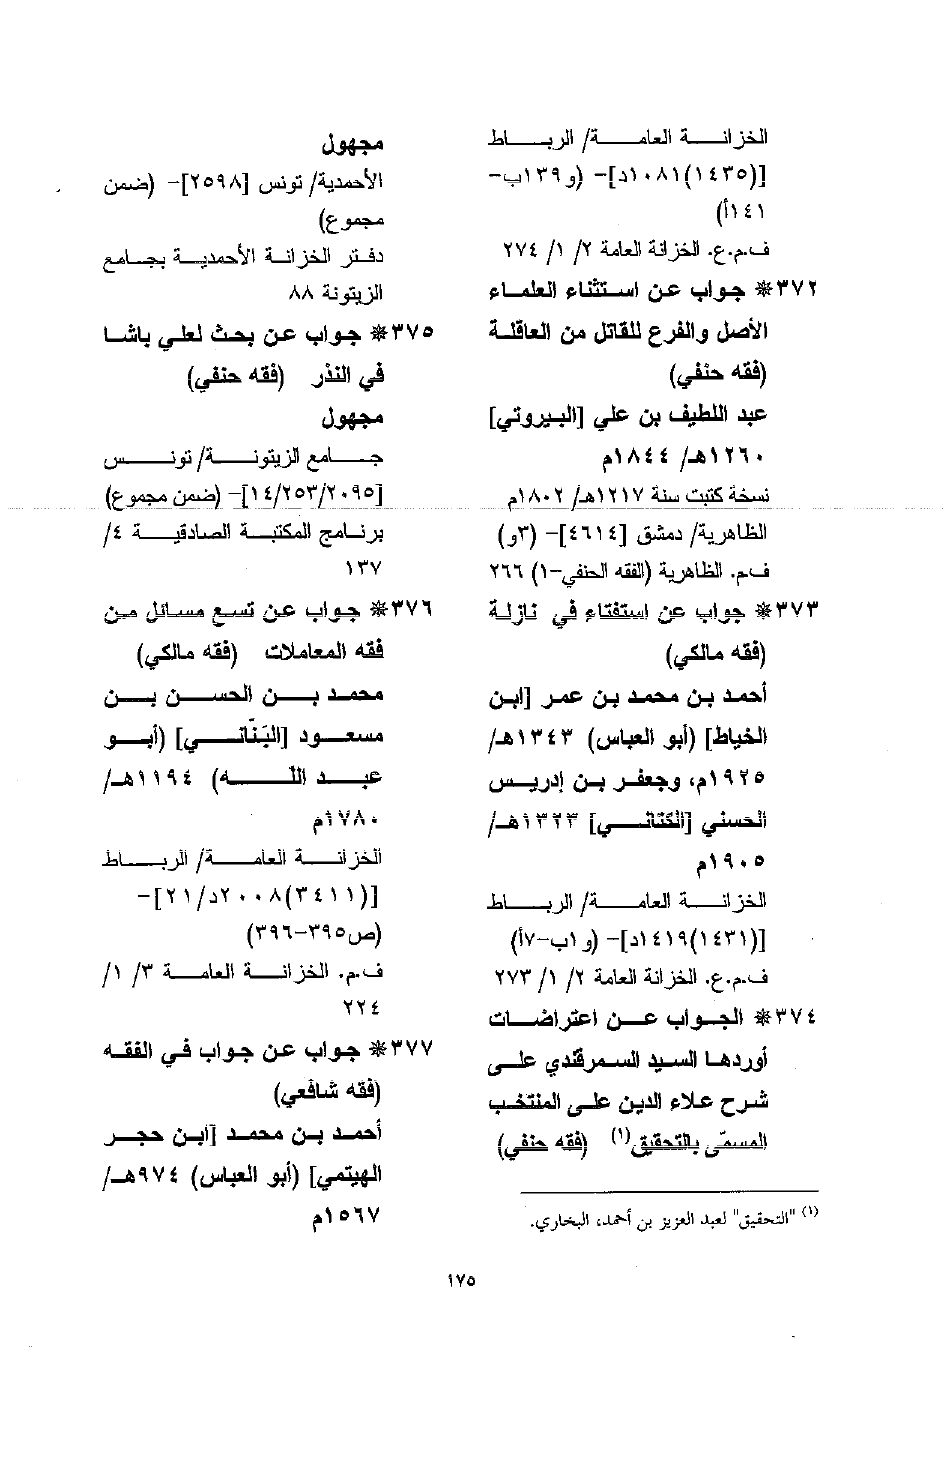 الخزانة العامة/ الرباط
[(١٤٣٥)١٠٨١د]- (و١٣٩ب-
١٤١أ)
ف.م.ع. الخزانة العامة ٢/ ١/ ٢٧٤
٣٧٢* جواب عن استثناء العلماء
الأصل والفرع للقاتل من العاقلة
(فقه حنفي)
عبد اللطيف بن علي [البيروتي]
١٢٦٠هـ/ ١٨٤٤م
نسخة كتبت سنة ١٢١٧هـ/ ١٨٠٢م
الظاهرية/ دمشق [٤٦١٤]- (٣و)
ف.م. الظاهرية (الفقه الحنفي-١) ٢٦٦
٣٧٣* جواب عن استفتاء في نازلة
(فقه مالكي)
أحمد بن محمد بن عمر [ابن
الخياط] (أبو العباس) ١٣٤٣هـ/
١٩٢٥م، وجعفر بن إدريس
الحسني [الكتاني] ١٣٢٣هـ/
١٩٠٥م
الخزانة العامة/ الرباط
[(١٤٣١)١٤١٩د]- (و١ب-٧أ)
ف.م.ع. الخزانة العامة ٢/ ١/ ٢٧٣
٣٧٤* الجواب عن اعتراضات
أوردها السيد السمرقندي على
شرح علاء الدين على المنتخب
المسمّى بالتحقيق(١) (فقه حنفي)
(١) "التحقيق" لعبد العزيز بن أحمد، البخاري.
مجهول
الأحمدية/ تونس [٢٥٩٨]- (ضمن
مجموع)
دفتر الخزانة الأحمدية بجامع
الزيتونة ٨٨
٣٧٥* جواب عن بحث لعلي باشا
في النذر (فقه حنفي)
مجهول
جامع الزيتونة/ تونس
[١٤/٢٥٣/٢٠٩٥]- (ضمن مجموع)
برنامج المكتبة الصادقية ٤/
١٣٧
٣٧٦* جواب عن تسع مسائل من
فقه المعاملات (فقه مالكي)
محمد بن الحسن بن
مسعود [البَنّاني] (أبو
عبد الله) ١١٩٤هـ/
١٧٨٠م
الخزانة العامة/ الرباط
[(٣٤١١)٢٠٠٨د/٢١]-
(ص٣٩٥-٣٩٦)
ف.م. الخزانة العامة ٣/ ١/
٢٢٤
٣٧٧* جواب عن جواب في الفقه
(فقه شافعي)
أحمد بن محمد [ابن حجر
الهيتمي] (أبو العباس) ٩٧٤هـ/
١٥٦٧م
١٧٥